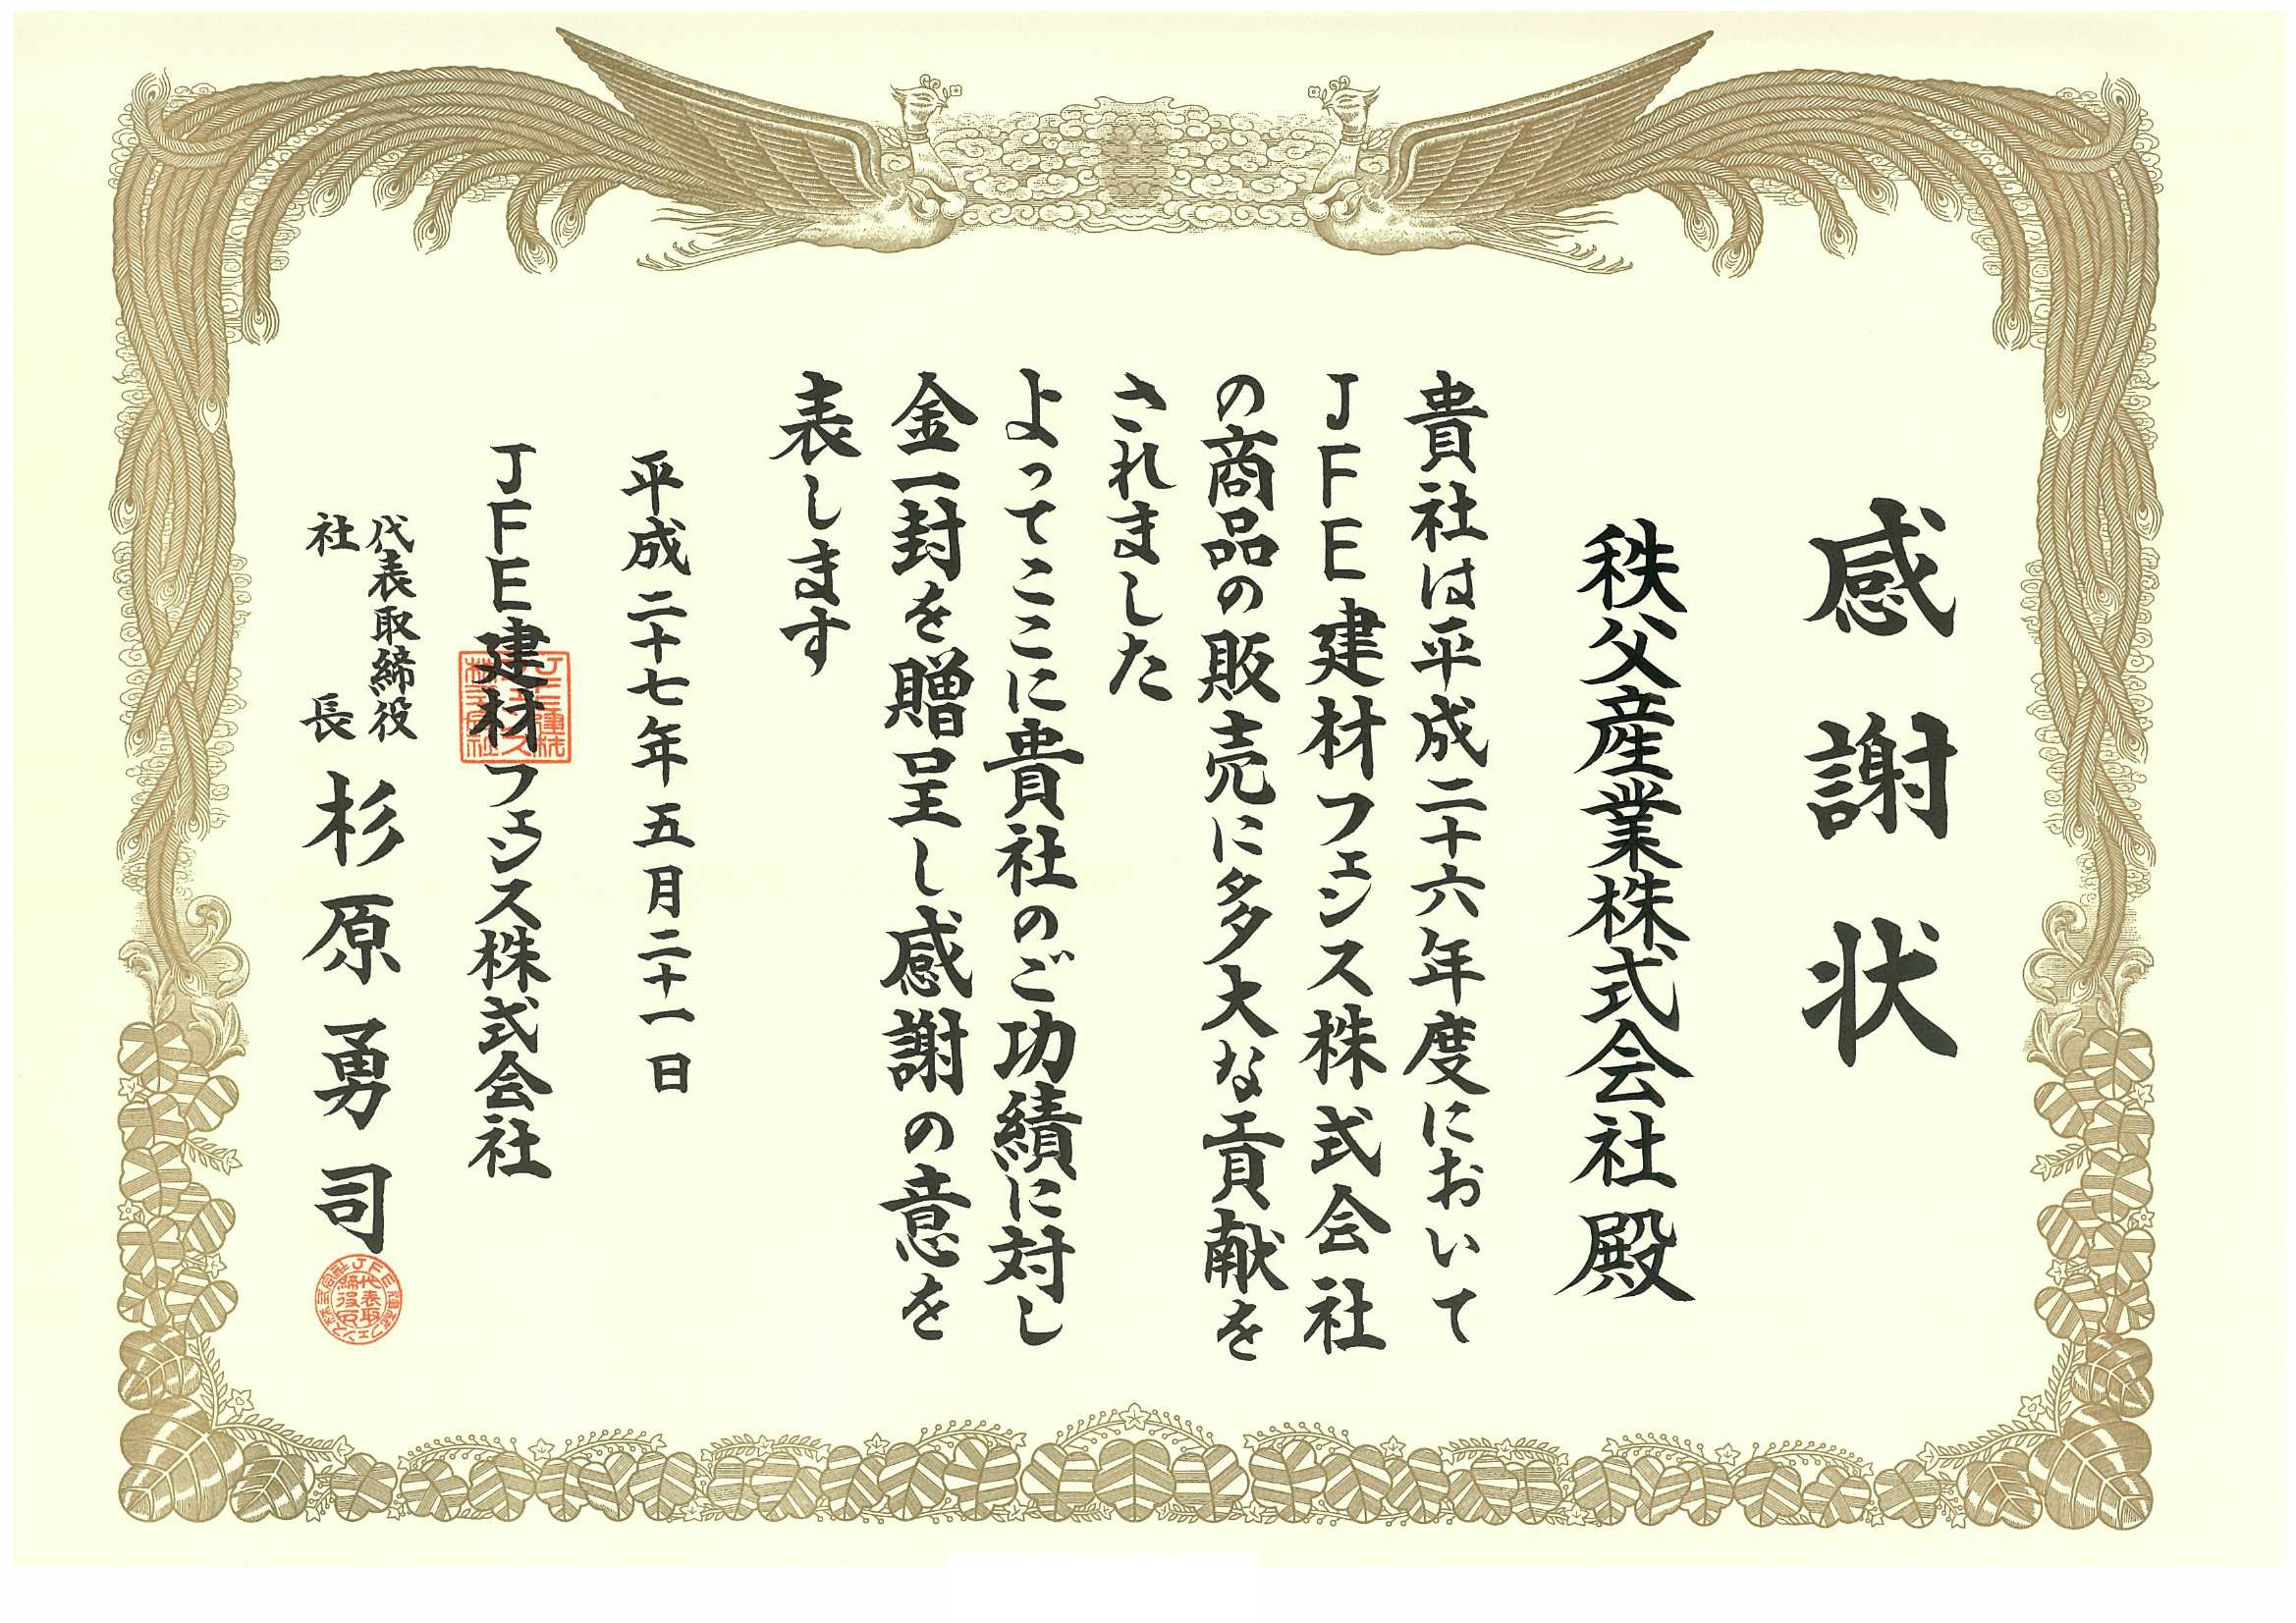 感謝状
秩父産業株式会社 殿
貴社は平成二十六年度において
JFE建材フェンス株式会社
の商品の販売に多大な貢献を
されました
よってここに貴社のご功績に対し
金一封を贈呈し感謝の意を
表します
平成二十七年五月二十一日
JFE建材フェンス株式会社
代表取締役
社長
杉原勇司